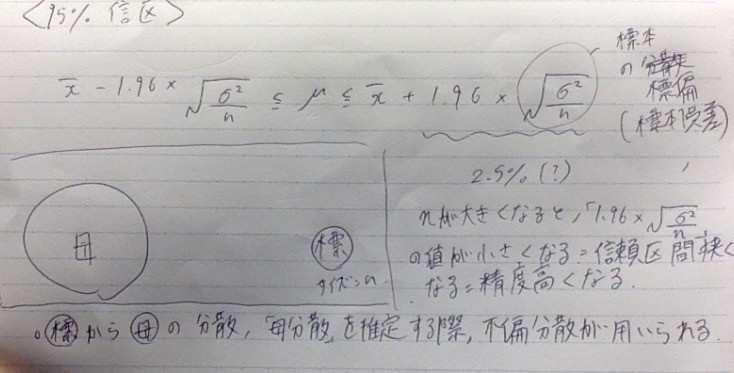 〈95% 信区〉
x̄ - 1.96 × √(σ²/n) ≦ μ ≦ x̄ + 1.96 × √(σ²/n)
標本
の分散
標偏
(標本誤差)
2.5% (?)
nが大きくなると,「1.96 × √(σ²/n)」
の値が小さくなる = 信頼区間狭く
なる = 精度高くなる.
母
標
サイズ:n
。標から母の分散,「母分散」を推定する際, 不偏分散が用いられる.